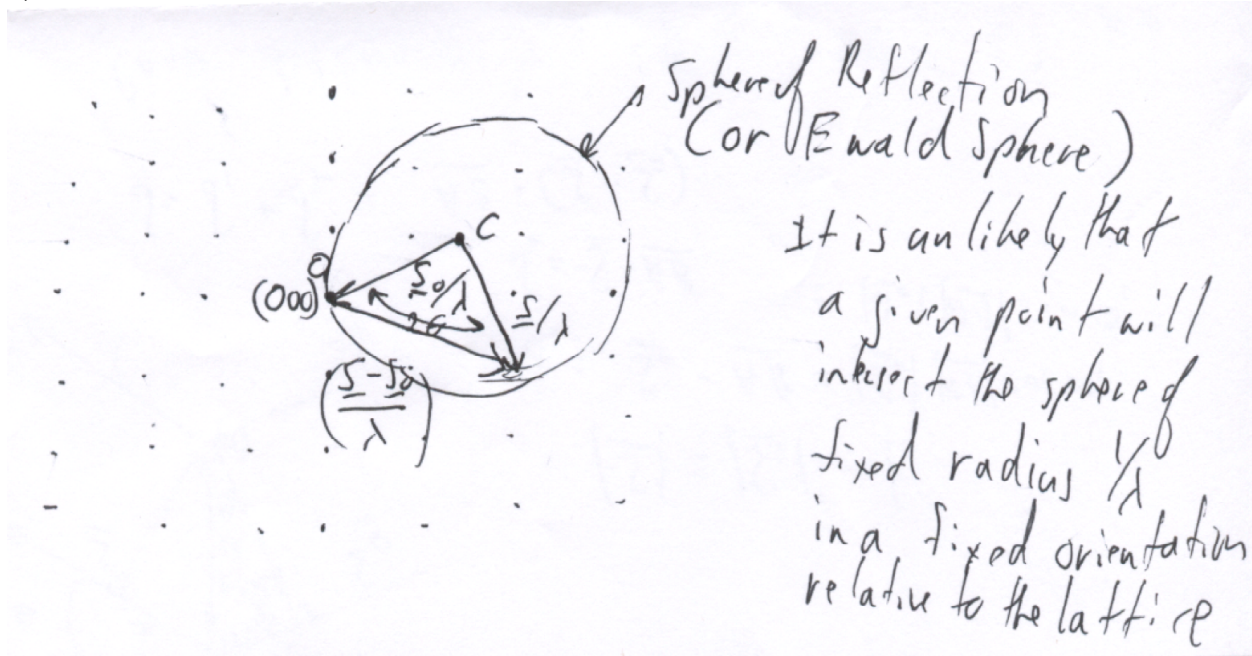 Sphere of Reflection
(or Ewald Sphere)
It is unlikely that
a given point will
intersect the sphere of
fixed radius 1/λ
in a fixed orientation
relative to the lattice
C
O
(000)
S0/λ
2θ
S/λ
(S - S0 / λ)